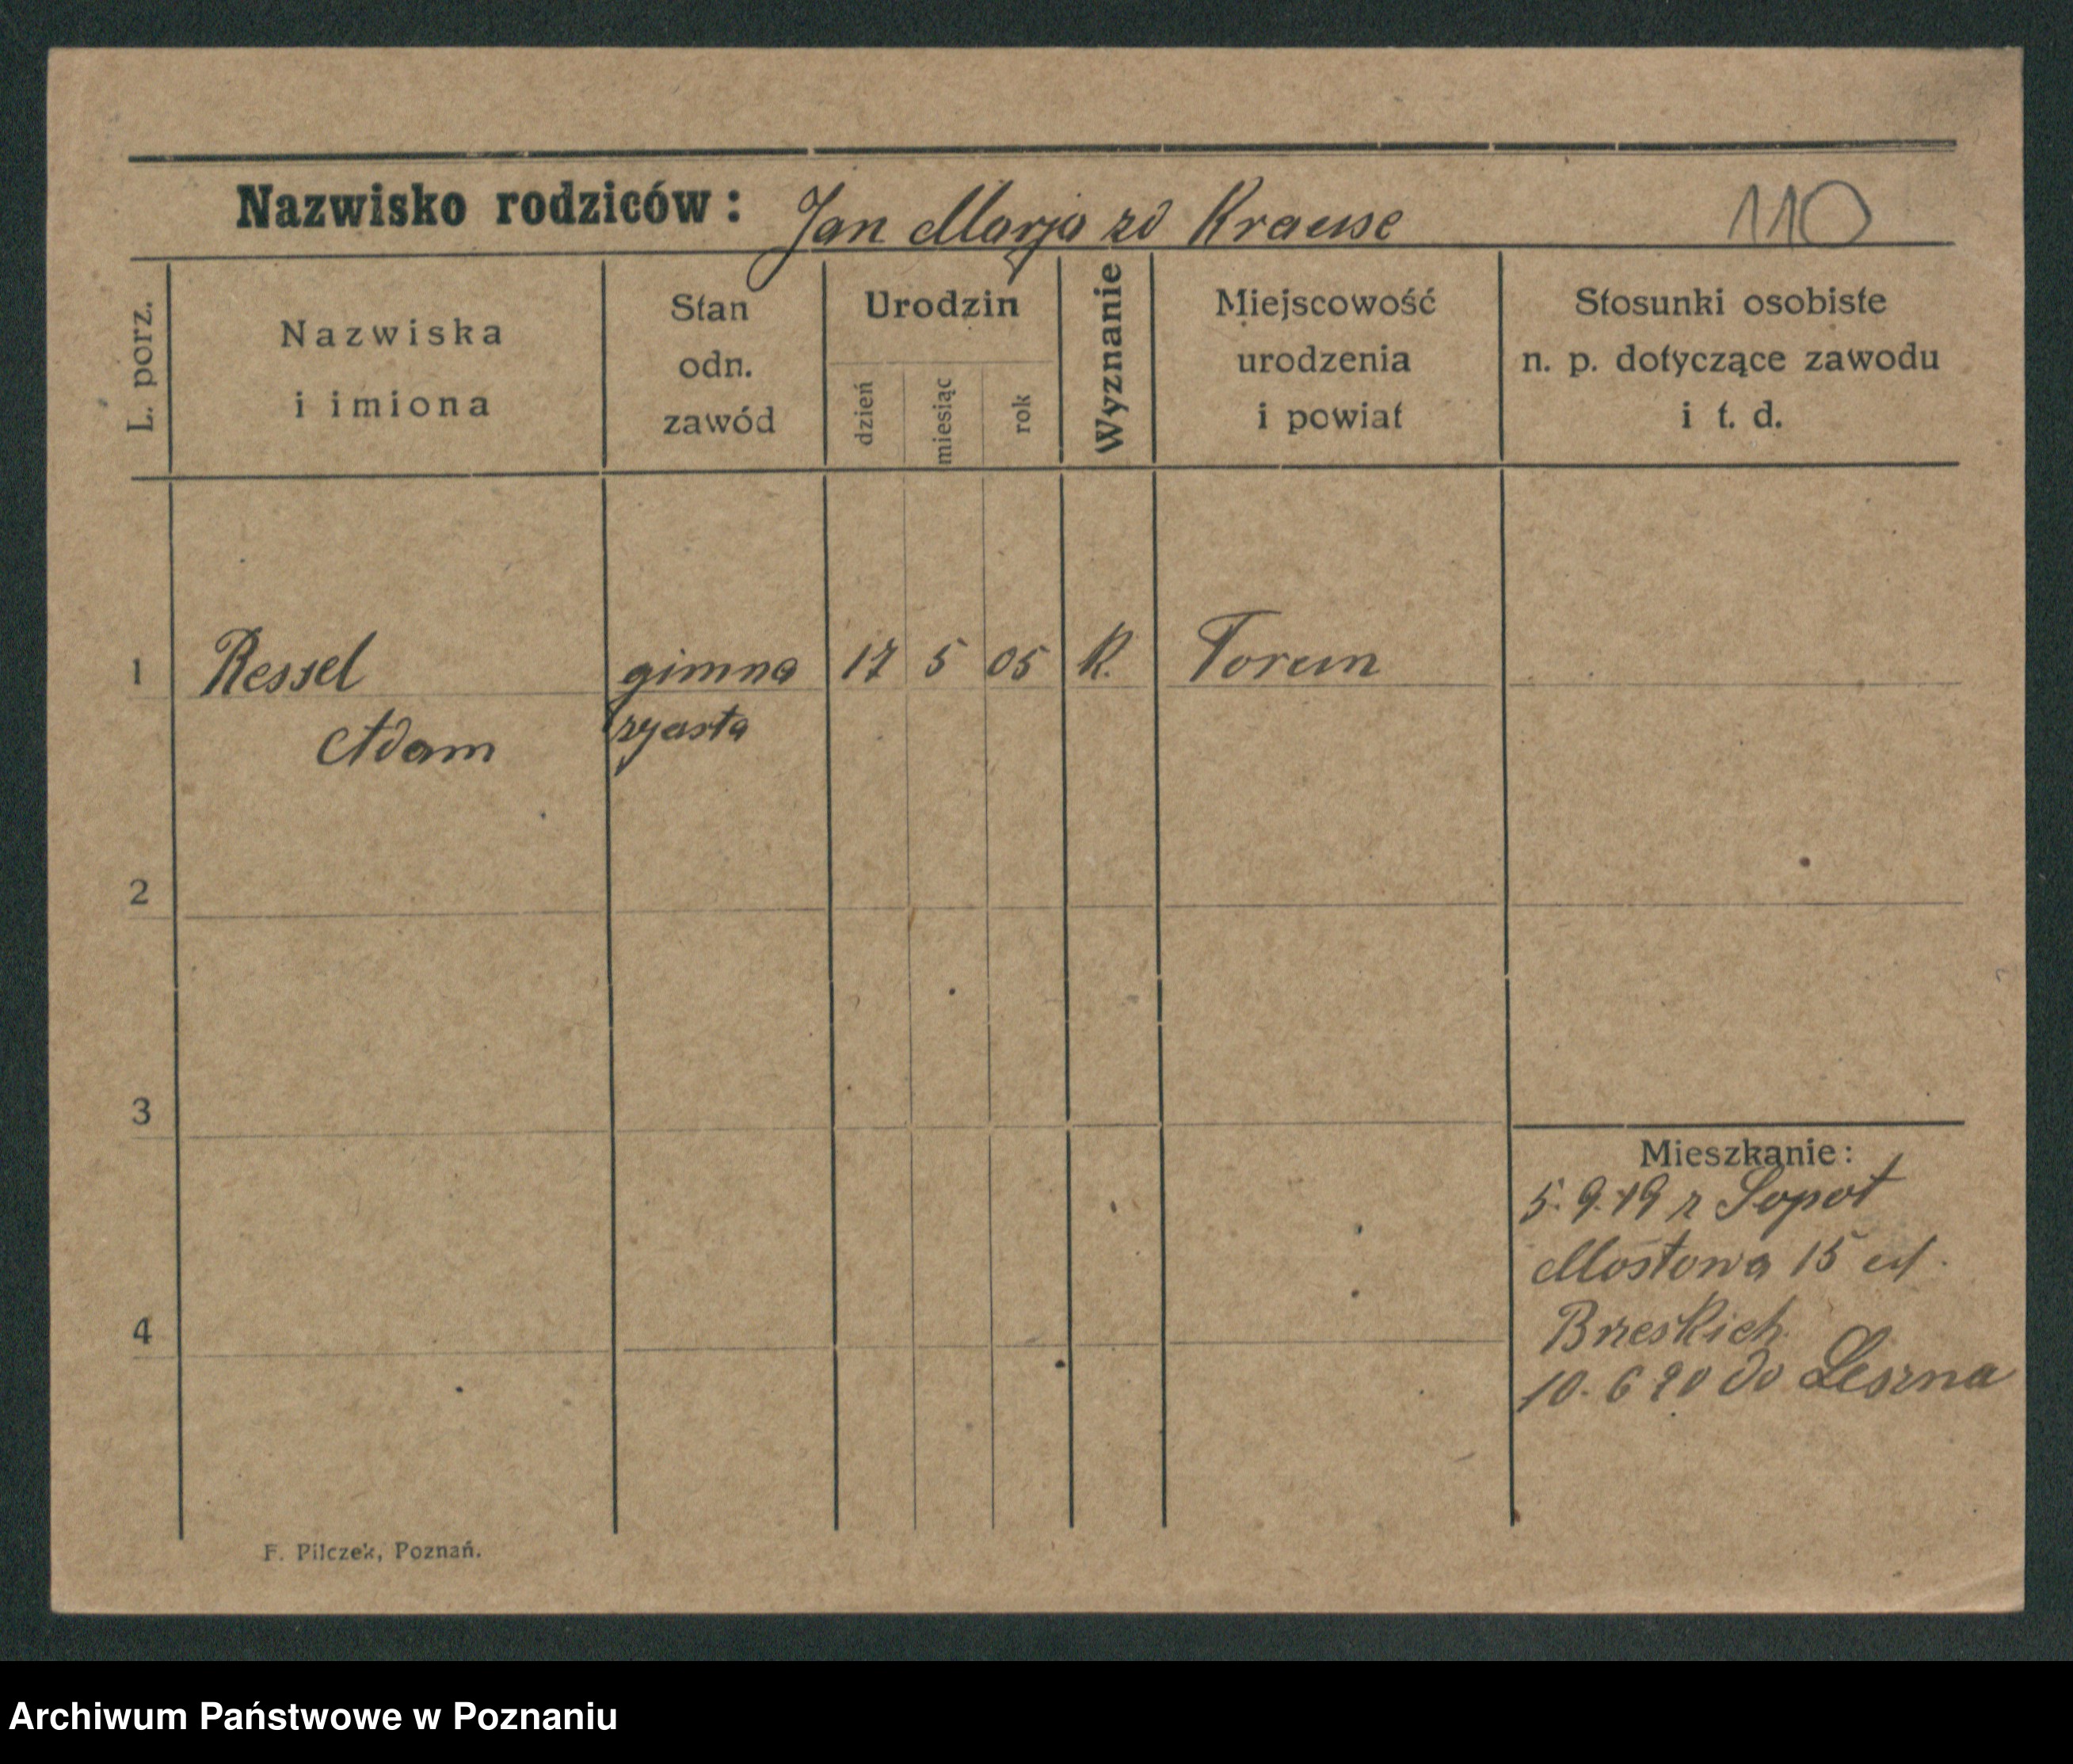 Nazwisko rodziców: Jan Marja zd Krause 110
L. porz.
Nazwiska
i imiona
Stan
odn.
zawód
Urodzin
dzień
miesiąc
rok
Wyznanie
Miejscowość
urodzenia
i powiat
Stosunki osobiste
n. p. dotyczące zawodu
i t. d.
1 Ressel gimna 17 5 05 K. Torun
Adam zyasta
2
3
4
Mieszkanie:
5.9.19 z Sopot
Mostowa 15
Brzeskich
10.6 20 do Leszna
F. Pilczek, Poznań.
Archiwum Państwowe w Poznaniu